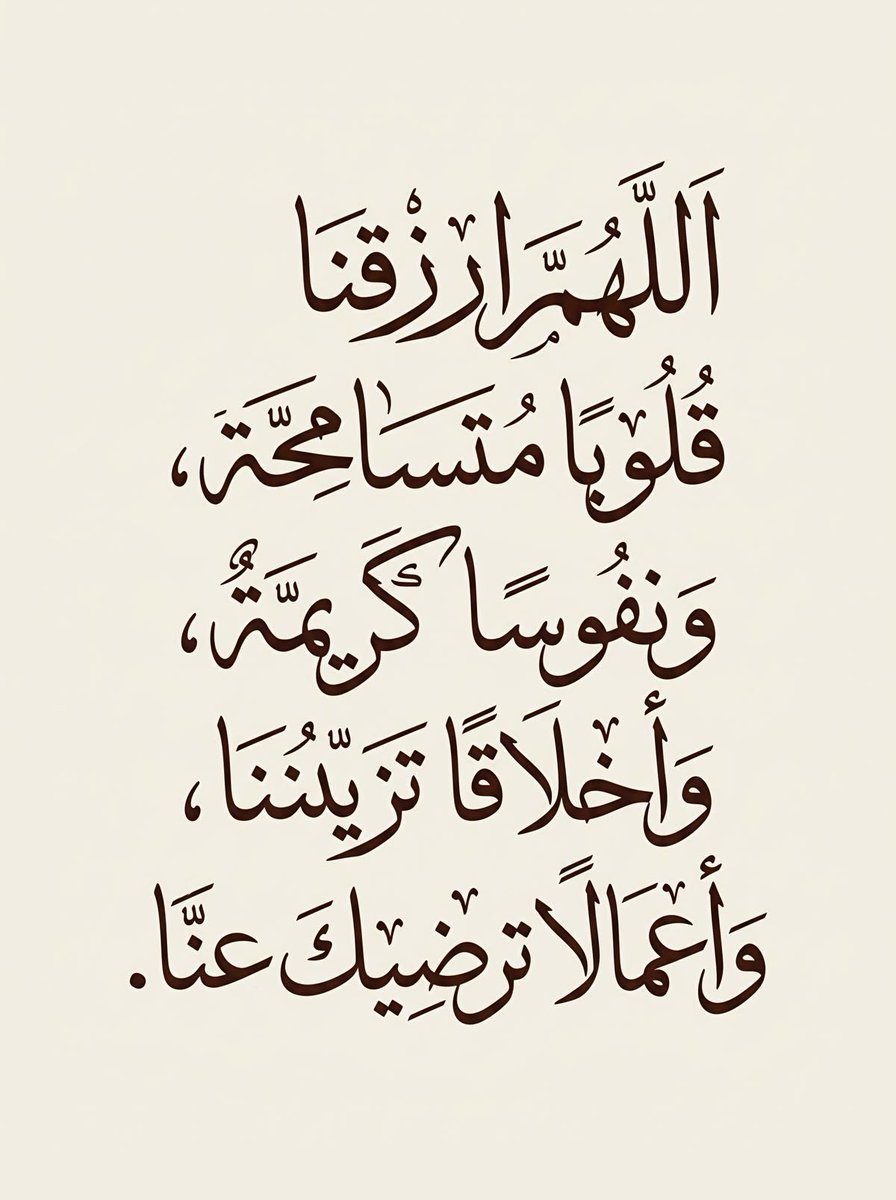 اَللَّهُمَّ ارْزُقْنَا
قُلُوْبًا مُتَسَامِحَّةَ،
وَنفُوسًا كَرِيمَّةٌ،
وَأَخْلَاقًا تَزَيّنُنَا،
وَأَعْمَالًا تْرضِيْكَ عنَّا.